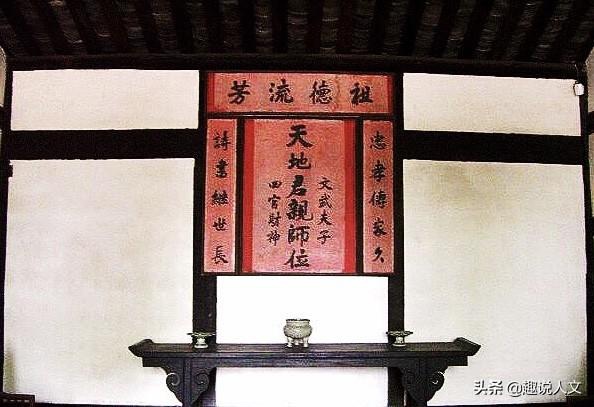 祖德流芳
忠孝傳家久
文武夫子
天地君親師位
四官財神
詩書繼世長
头条 @趣说人文